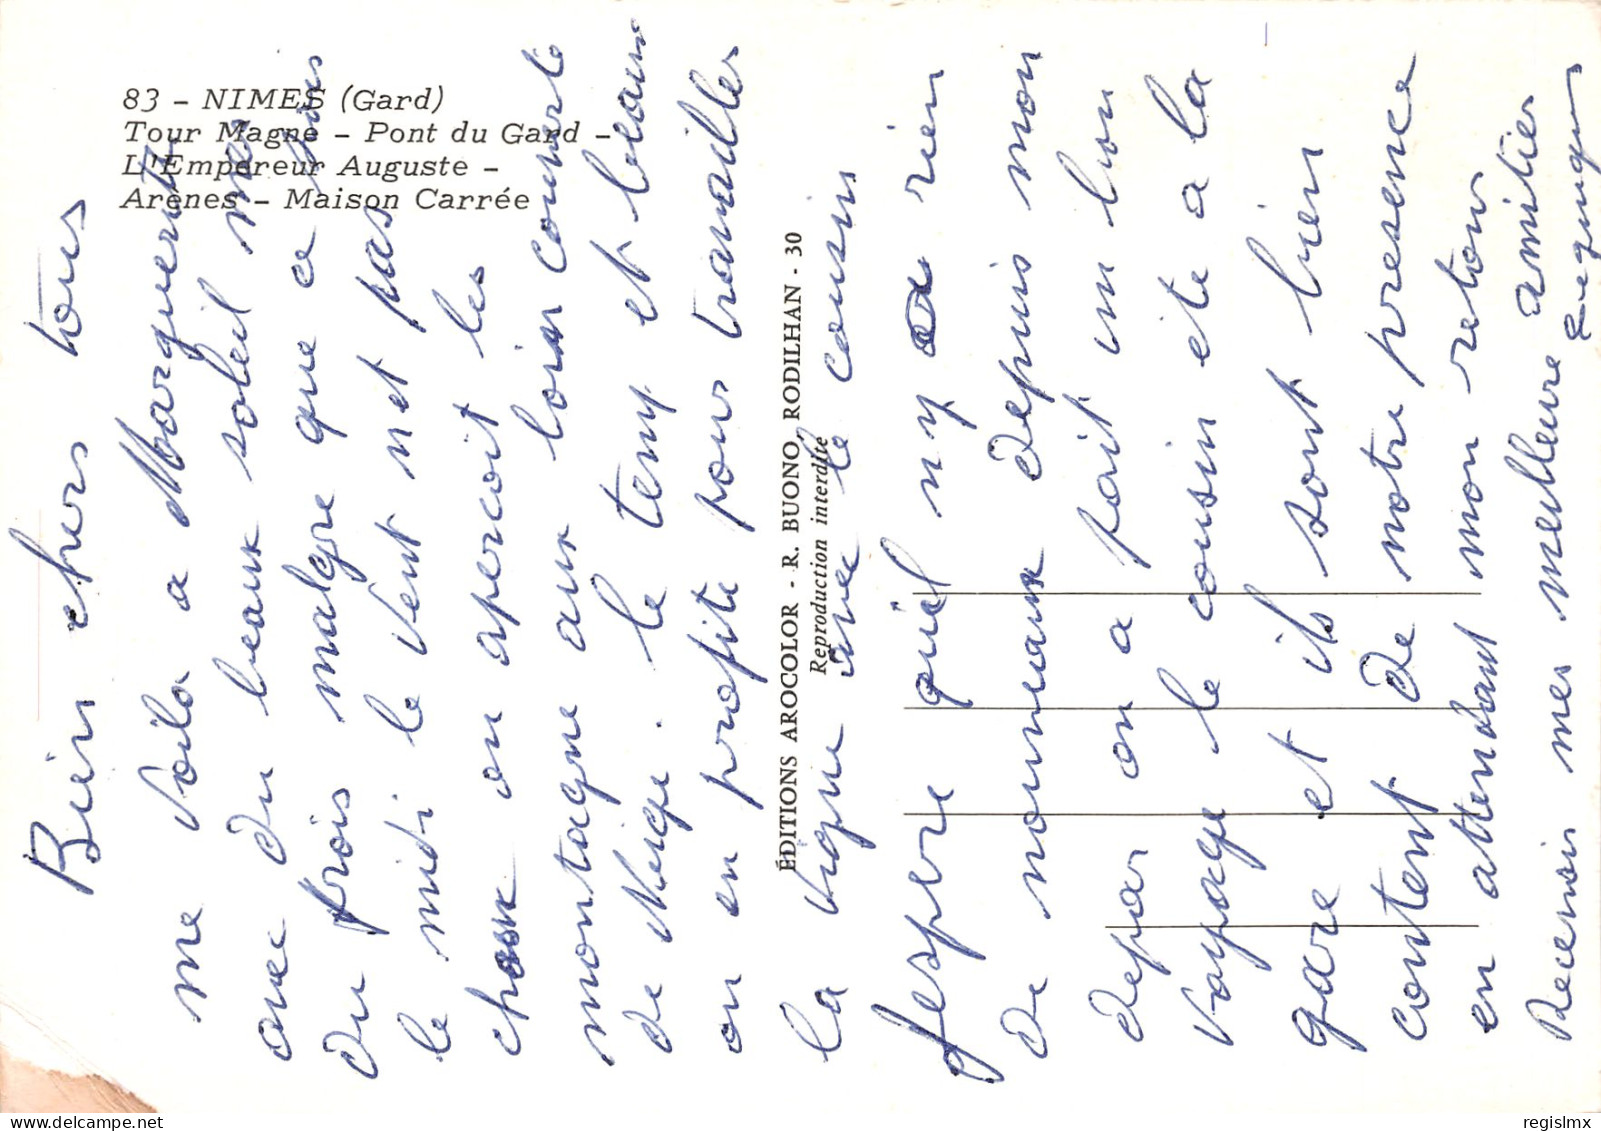 83 - NIMES (Gard)
Tour Magne - Pont du Gard -
L'Empereur Auguste -
Arènes - Maison Carrée
ÉDITIONS AROCOLOR - R. BUONO RODILHAN - 30
Reproduction interdite
Bien chers tous
me voila a Marguerite
avec du beaux soleil mes
du frois malgre que ce sois
le midi le vent n et pas
chaux on apercoit les
montagne aux loin couverte
de neige. le temp et beaux
on en profite pour travailler
la vigne avec le cousin
jespere quil n y a rien
de nouveaux depuis mon
depar on a fait un bon
voyage le cousin ete a la
gare et ils sont bien
content de notre presence
en attendant mon retour
Recevoir mes meilleure amitier
regislmx